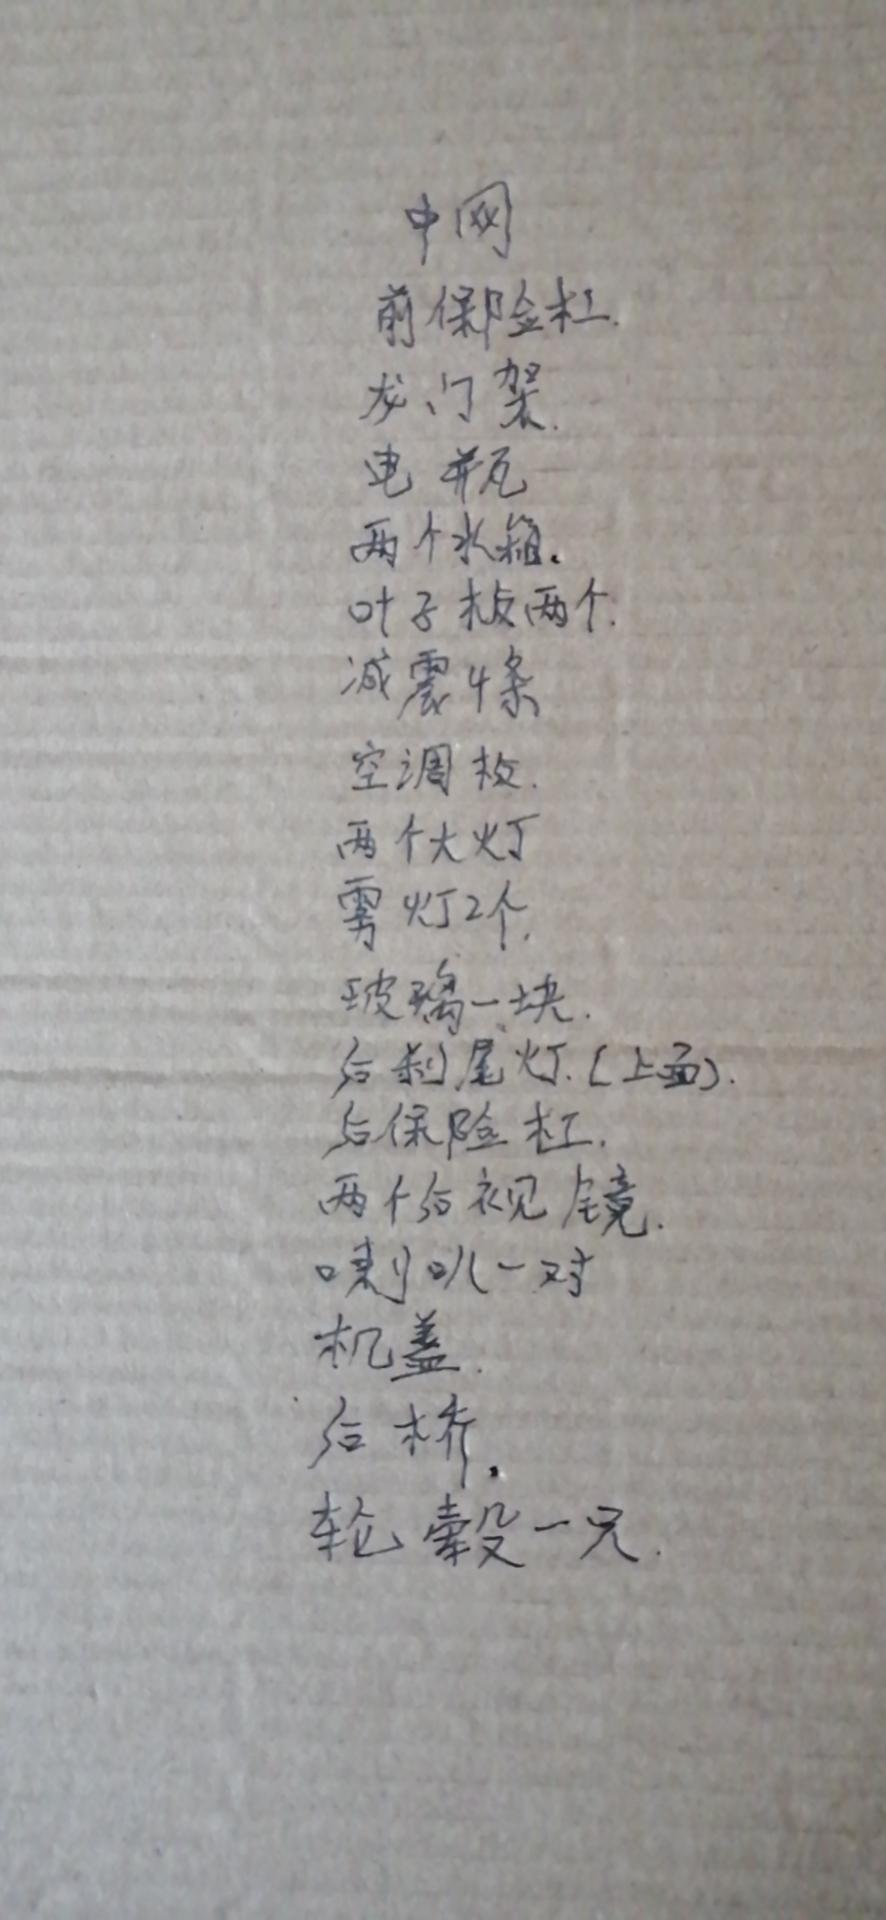 中网
前保险杠.
龙门架.
电瓶
两个水箱.
叶子板两个.
减震4条
空调板.
两个大灯
雾灯2个.
玻璃一块.
后刹尾灯.(上面).
后保险杠.
两个后视镜.
喇叭一对
机盖.
后桥.
轮毂一只.